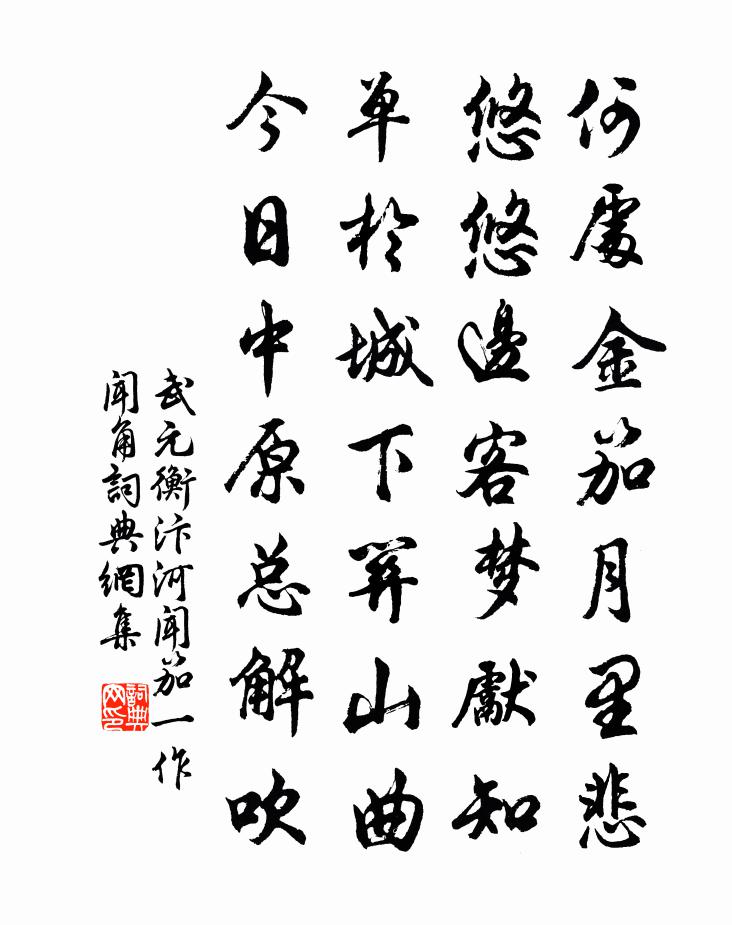 何處金笳月里悲
悠悠邊客梦獻知
单於城下关山曲
今日中原总解吹
武元衡汴河聞笳一作
聞角詞典網集
詞典
网印